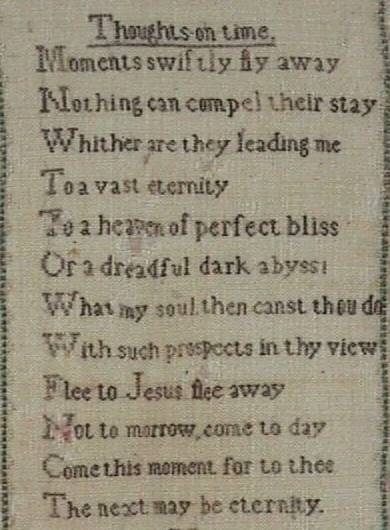 Thoughts on time.
Moments swiftly fly away
Nothing can compel their stay
Whither are they leading me
To a vast eternity
To a heaven of perfect bliss
Or a dreadful dark abyss
What my soul then canst thou do
With such prospects in thy view
Flee to Jesus flee away
Not to morrow, come to day
Come this moment for to thee
The next may be eternity.